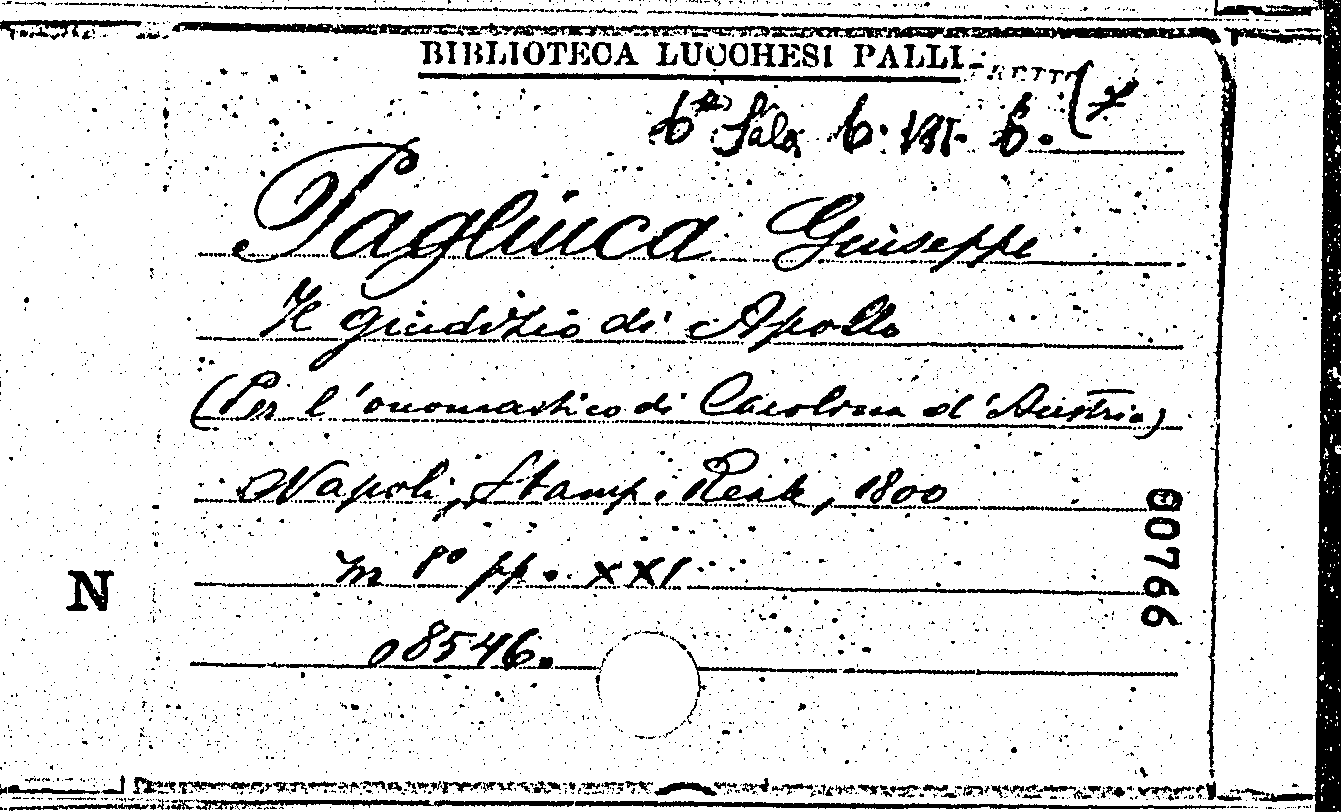 BIBLIOTECA LUCCHESI PALLI
6ª Sala 6. VII. 6. (7
Pagliuca Giuseppe
Il giudizio di Apollo
(Per l'onomastico di Carolina d'Austria)
Napoli, Stamp. Reale, 1800
in 8° pp. XXI
08546.
00766
N